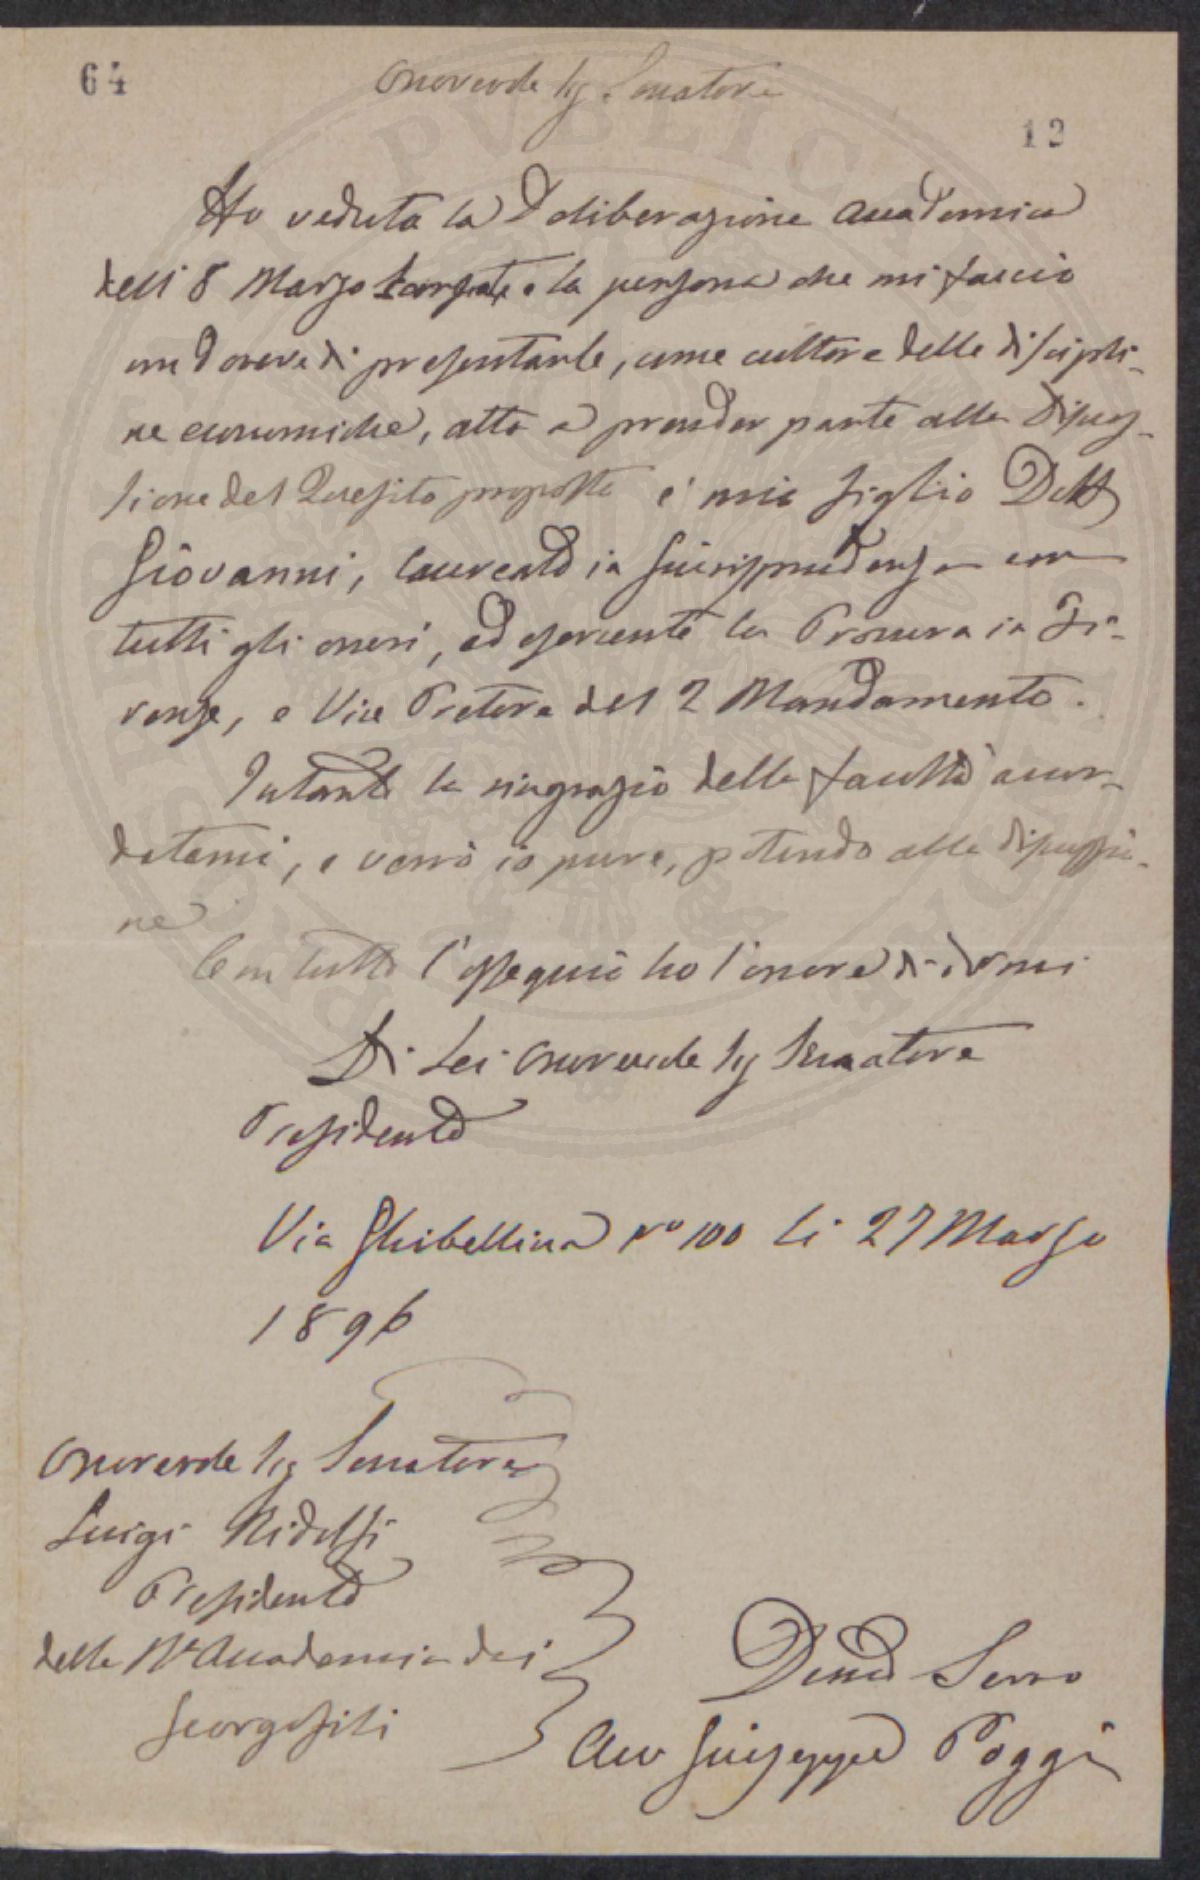 64
Onorevole Sig. Senatore
12
Ho veduta la Deliberazione Accademica
delli 8 Marzo e la persona che mi faccio
un dovere di presentarle, come cultore delle discipli-
ne economiche, atto a prender parte alla discus-
sione del Quesito proposto è mio figlio Dott
Giovanni, laureato in Giurisprudenza con
tutti gli onori, ed esercente la Procura in Fi-
renze, e Vice Pretore del 2 Mandamento.
Intanto la ringrazio della facoltà accor-
datami, e verrò io pure, potendo alla discussio-
ne
Con tutto l'ossequio ho l'onore di dirmi
Di Lei Onorevole Sig Senatore
Presidente
Via Ghibellina No 100 li 27 Marzo
1896
Onorevole Sig Senatore
Luigi Ridolfi
Presidente
della Rle Accademia dei
Georgofili
Devmo Servo
Avv Giuseppe Poggi